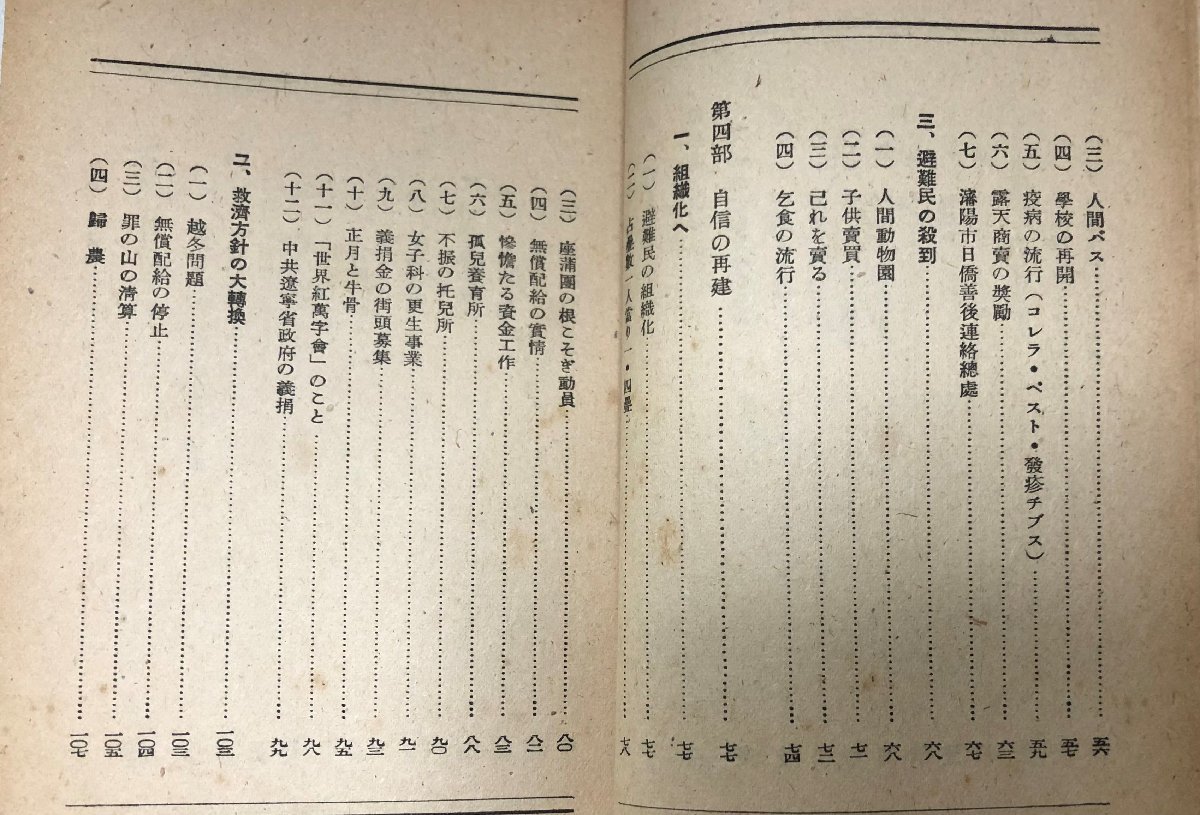 (三) 人間パス……五六
(四) 學校の再開……五七
(五) 疫病の流行(コレラ・ペスト・發疹チブス)……五九
(六) 露天商賣の奬勵……六三
(七) 瀋陽市日僑善後連絡總處……六七
三、避難民の殺到……六八
(一) 人間動物園……六八
(二) 子供賣買……七一
(三) 己れを賣る……七二
(四) 乞食の流行……七四
第四部 自信の再建……七七
一、組織化へ……七七
(一) 避難民の組織化……七七
(二) 占疊數一人當り一・四疊……七八
(三) 座蒲團の根こそぎ動員……八〇
(四) 無償配給の實情……八二
(五) 慘憺たる資金工作……八三
(六) 孤兒養育所……八八
(七) 不振の托兒所……九〇
(八) 女子科の更生事業……九一
(九) 義捐金の街頭募集……九三
(十) 正月と牛骨……九五
(十一) 「世界紅萬字會」のこと……九八
(十二) 中共遼寧省政府の義捐……九九
二、救濟方針の大轉換……一〇三
(一) 越冬問題……一〇三
(二) 無償配給の停止……一〇四
(三) 罪の山の清算……一〇五
(四) 歸農……一〇七